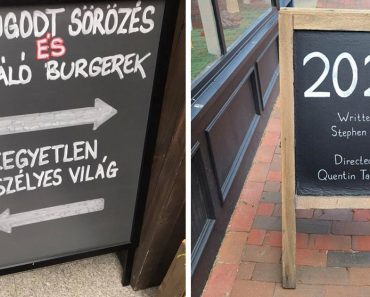 UGODT SÖRÖZÉS
ÉS
ÁLÓ BURGEREK
EGYETLEN
SZÉLYES VILÁG
202
Writte
Stephen
Directed
Quentin Ta